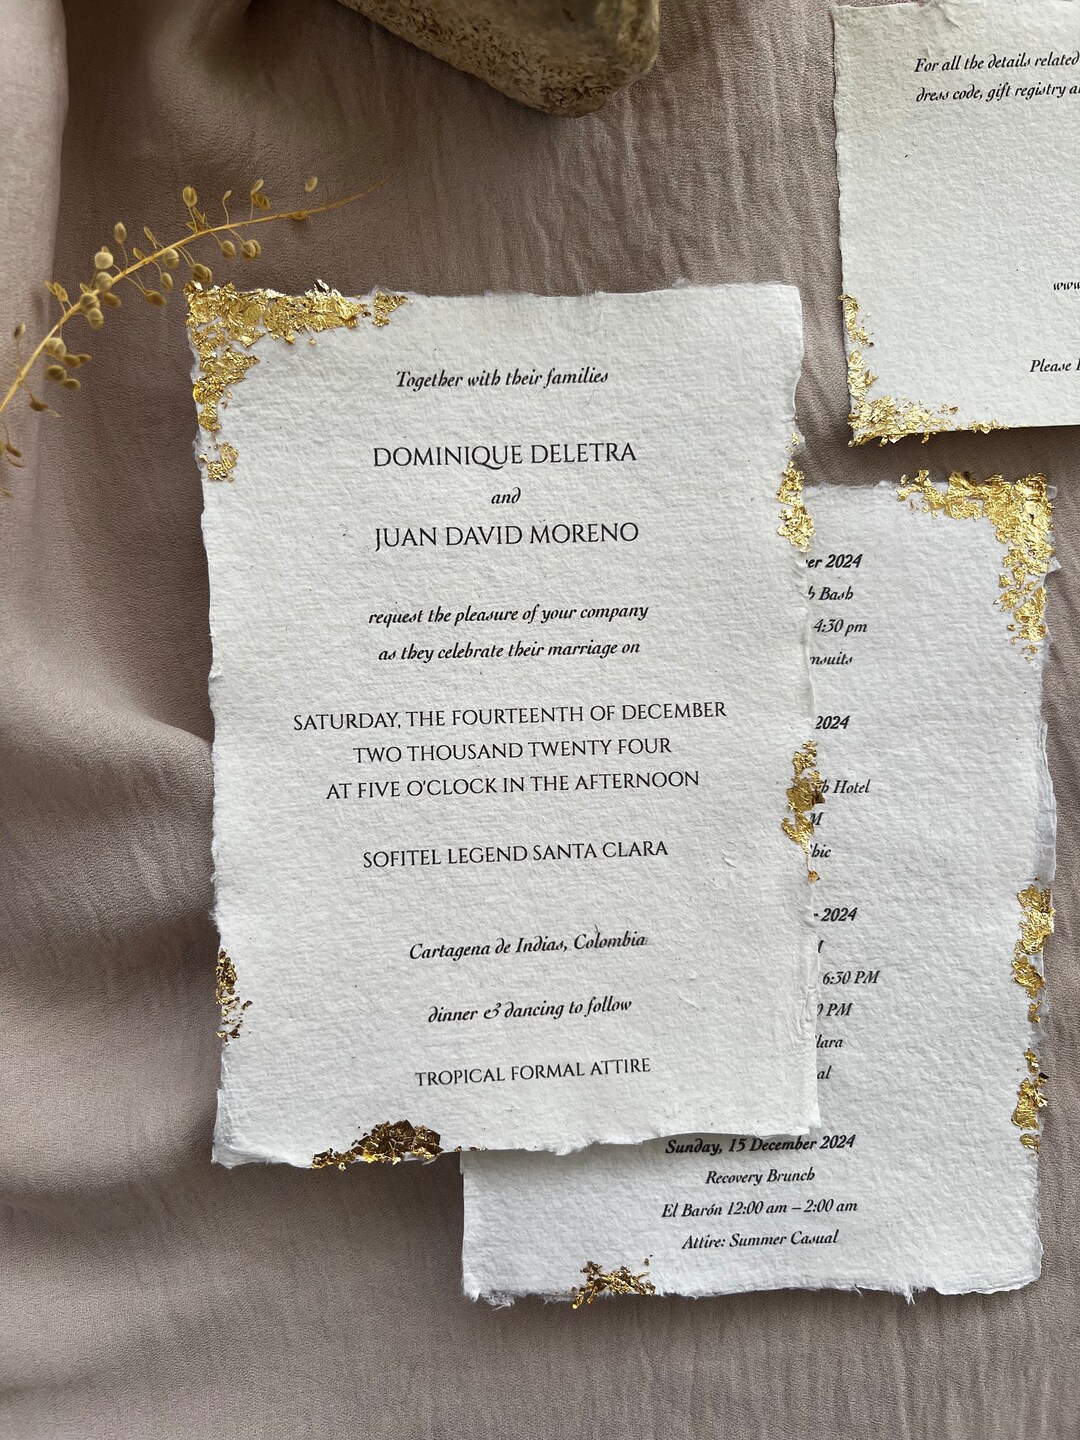 Together with their families
DOMINIQUE DELETRA
and
JUAN DAVID MORENO
request the pleasure of your company
as they celebrate their marriage on
SATURDAY, THE FOURTEENTH OF DECEMBER
TWO THOUSAND TWENTY FOUR
AT FIVE O'CLOCK IN THE AFTERNOON
SOFITEL LEGEND SANTA CLARA
Cartagena de Indias, Colombia
dinner & dancing to follow
TROPICAL FORMAL ATTIRE
For all the details related
dress code, gift registry
www.
Please
2024
Bash
4:30 pm
2024
Hotel
2024
6:30 PM
PM
Sunday, 15 December 2024
Recovery Brunch
El Barón 12:00 am – 2:00 am
Attire: Summer Casual